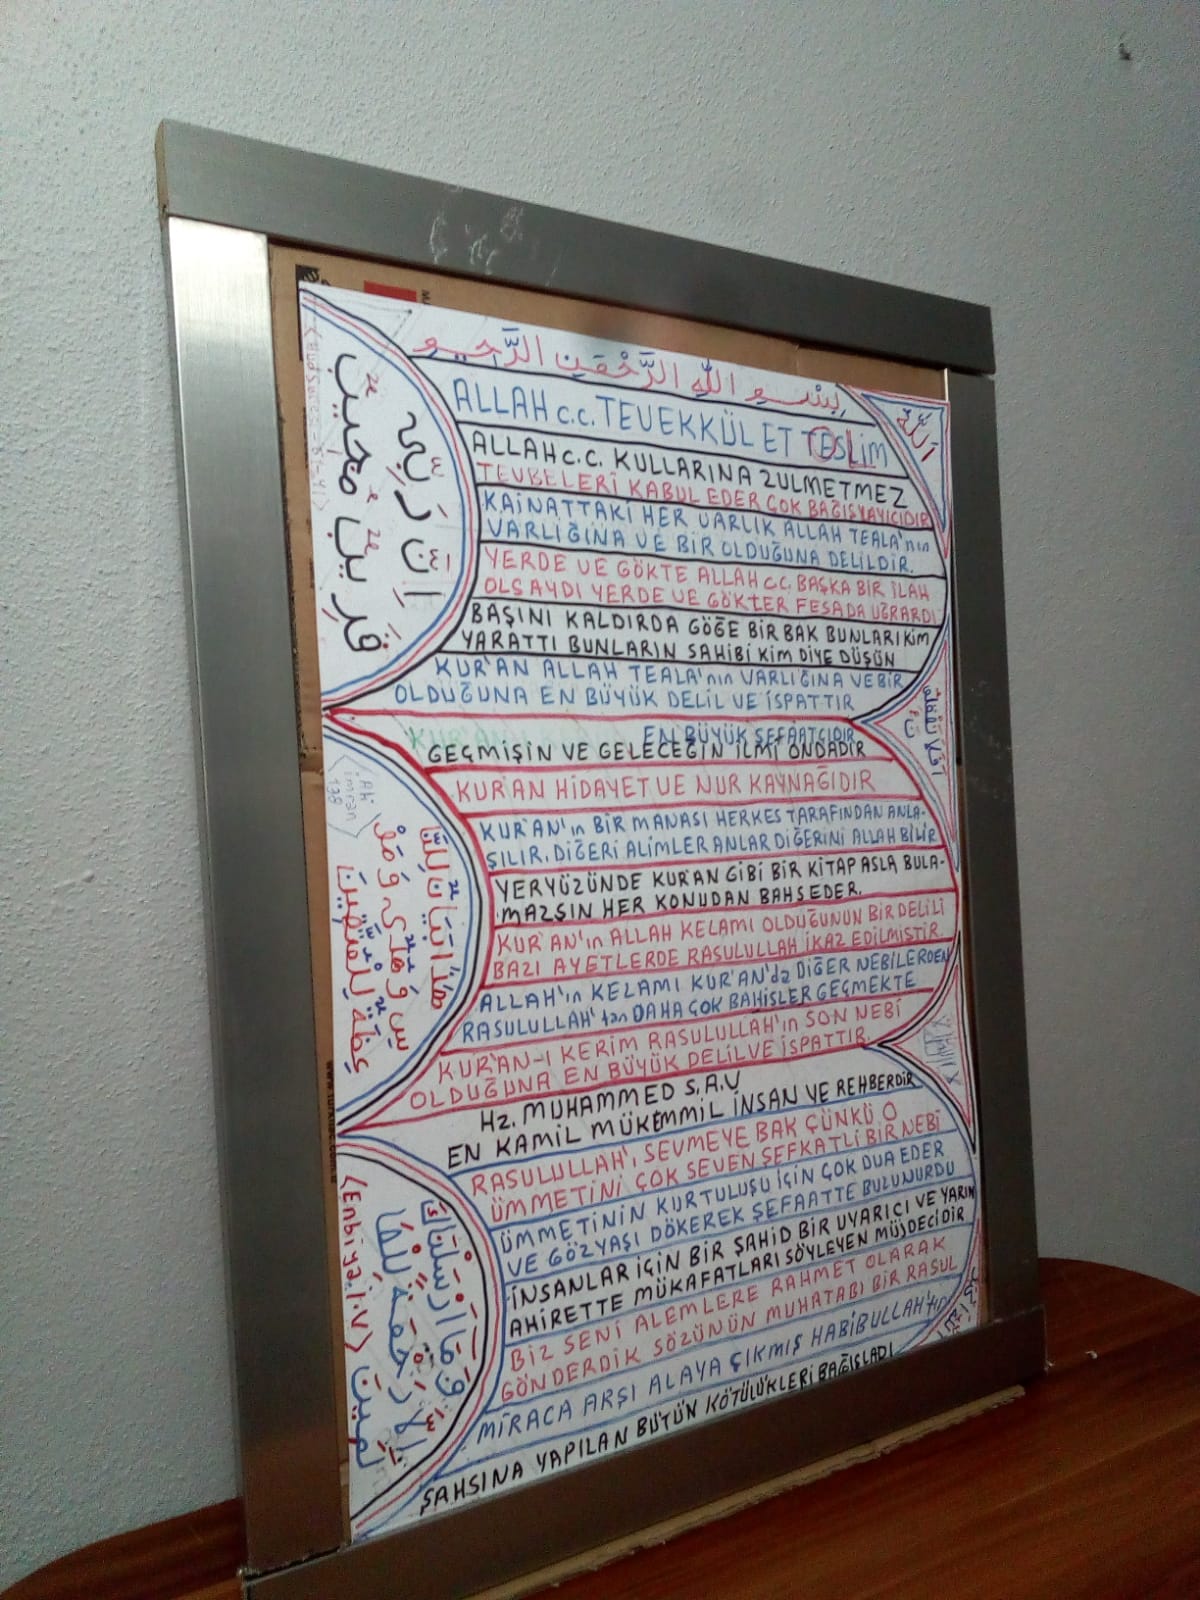 بِسْمِ اللّٰهِ الرَّحْمٰنِ الرَّحِيمِ
ALLAH c.c. TEVEKKÜL ET TESLİM
ALLAH c.c. KULLARINA ZULMETMEZ
TEVBELERİ KABUL EDER ÇOK BAĞIŞLAYICIDIR
KAİNATTAKİ HER VARLIK ALLAH TEALA'nın
VARLIĞINA VE BİR OLDUĞUNA DELİLDİR.
YERDE VE GÖKTE ALLAH c.c. BAŞKA BİR İLAH
OLSAYDI YERDE VE GÖKTER FESADA UĞRARDI
BAŞINI KALDIRDA GÖĞE BİR BAK BUNLARI KİM
YARATTI BUNLARIN SAHİBİ KİM DİYE DÜŞÜN
KUR'AN ALLAH TEALA'nın VARLIĞINA VE BİR
OLDUĞUNA EN BÜYÜK DELİL VE İSPATTIR
EN BÜYÜK ŞEFAATÇIDIR
GEÇMİŞİN VE GELECEĞİN İLMİ ONDADIR
KUR'AN HİDAYET VE NUR KAYNAĞIDIR
KUR'AN'ın BİR MANASI HERKES TARAFINDAN ANLA-
ŞILIR. DİĞERİ ALİMLER ANLAR DİĞERİNİ ALLAH BİLİR
YERYÜZÜNDE KUR'AN GİBİ BİR KİTAP ASLA BULA-
MAZSIN HER KONUDAN BAHSEDER.
KUR'AN'ın ALLAH KELAMI OLDUĞUNUN BİR DELİLİ
BAZI AYETLERDE RASULULLAH İKAZ EDİLMİŞTİR.
ALLAH'ın KELAMI KUR'AN'da DİĞER NEBİLERDEN
RASULULLAH'tan DAHA ÇOK BAHİSLER GEÇMEKTE
KUR'AN-I KERİM RASULULLAH'ın SON NEBİ
OLDUĞUNA EN BÜYÜK DELİL VE İSPATTIR.
Hz. MUHAMMED S.A.V
EN KAMİL MÜKEMMİL İNSAN VE REHBERDİR
RASULULLAH'ı SEVMEYE BAK ÇÜNKÜ O
ÜMMETİNİ ÇOK SEVEN ŞEFKATLİ BİR NEBİ
ÜMMETİNİN KURTULUŞU İÇİN ÇOK DUA EDER
VE GÖZYAŞI DÖKEREK ŞEFAATTE BULUNURDU
İNSANLAR İÇİN BİR ŞAHİD BİR UYARICI VE YARIN
AHİRETTE MÜKAFATLARI SÖYLEYEN MÜJDECİDİR
BİZ SENİ ALEMLERE RAHMET OLARAK
GÖNDERDİK SÖZÜNÜN MUHATABI BİR RASUL
MİRACA ARŞI ALAYA ÇIKMIŞ HABİBULLAH'tır
ŞAHSINA YAPILAN BÜTÜN KÖTÜLÜKLERİ BAĞIŞLADI
اِنَّ رَبّٖي
قَرِيبٌ مُجِيبٌ
هٰذَا بَيَانٌ لِلنَّا
سِ وَهُدًى وَمَوْ
عِظَةٌ لِلْمُتَّقِينَ
〈Ali
imran
138〉
وَمَا اَرْسَلْنَاكَ
اِلَّا رَحْمَةً لِلْعَا
لَمِينَ
〈Enbiya:107〉
اَللّٰهُ